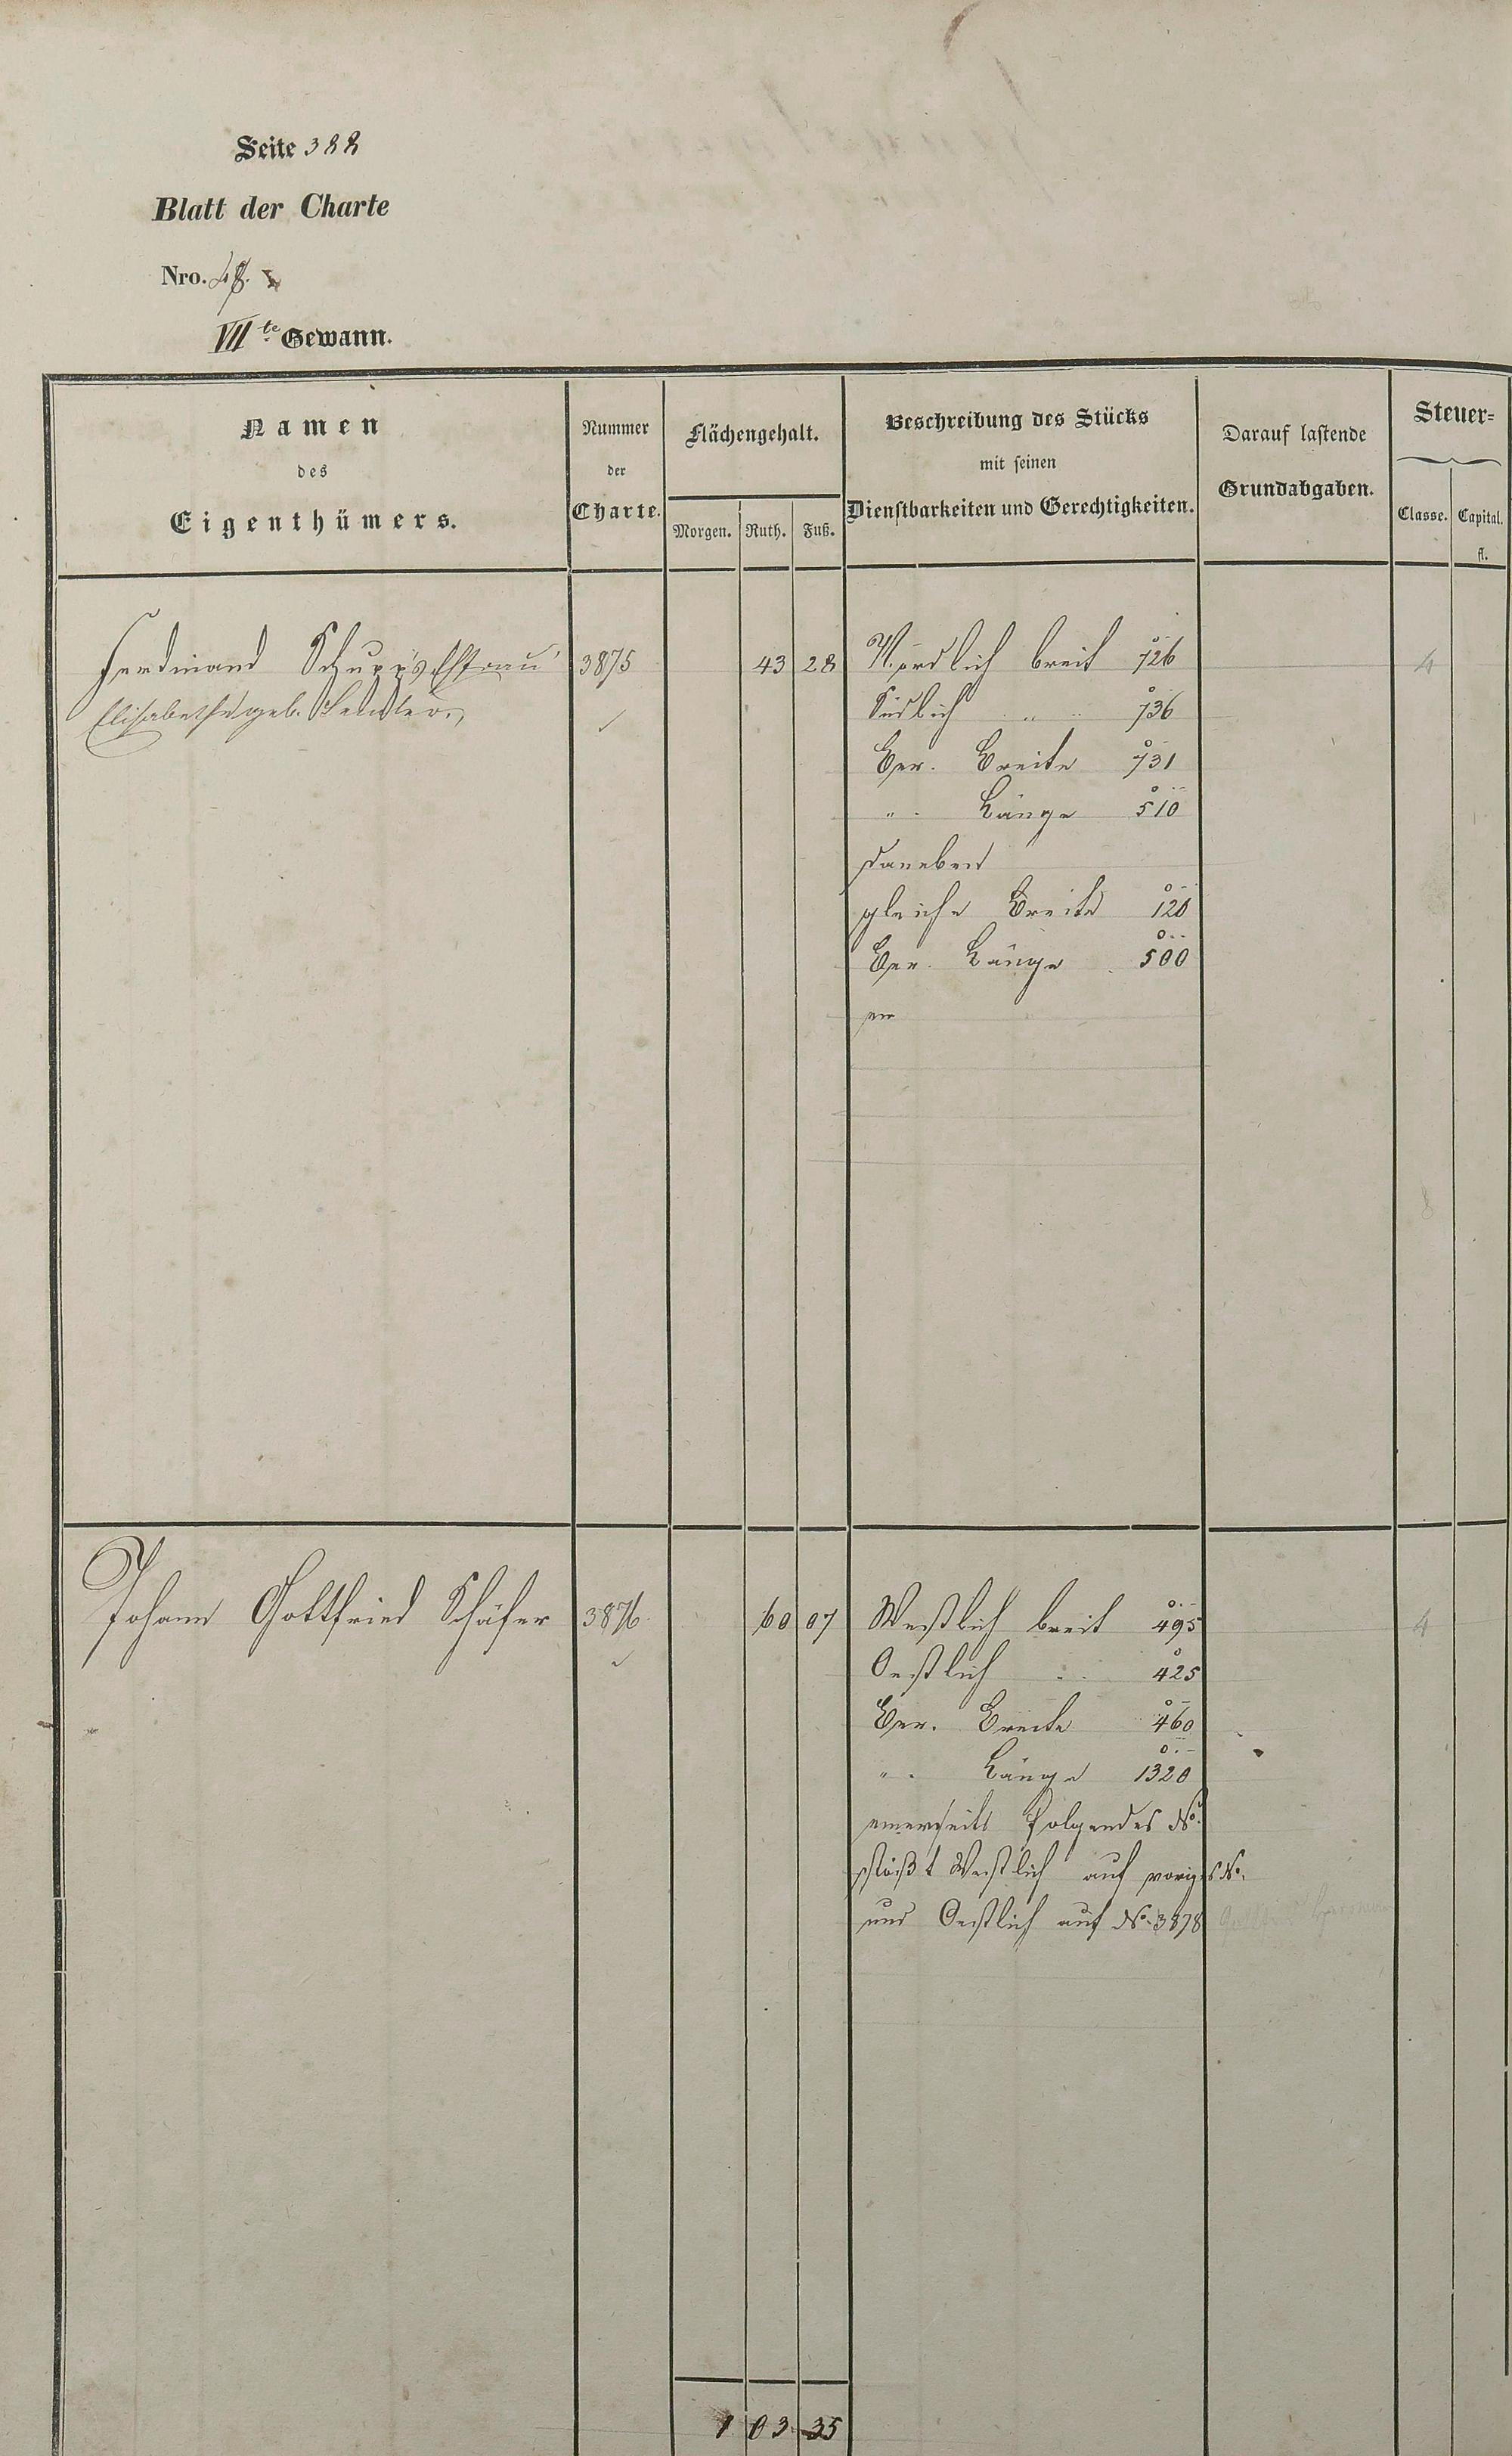 Seite 388
Blatt der Charte
Nro. 48.
VII te Gewann.
Namen
des
Eigenthümers.
Nummer
der
Charte.
Flächengehalt.
Morgen. Ruth. Fuß.
Beschreibung des Stücks
mit seinen
Dienstbarkeiten und Gerechtigkeiten.
Darauf lastende
Grundabgaben.
Steuer=
Classe. Capital.
fl.
Ferdinand Schupp's Ehfrau 3875 43 28 Nördlich breit 726 4
Elisabetha geb.
Südlich " " 736
Ber. Breite 731
" Länge 510
daneben
gleiche Breite 120
Ber. Länge 500
Johann Gottfried Schäfer 3876 60 07 Westlich breit 495 4
Oestlich " 425
Ber. Breite 460
" Länge 1320
einerseits folgendes No.
stößt Westlich auf voriges No.
und Oestlich auf No. 3878
1 03 35